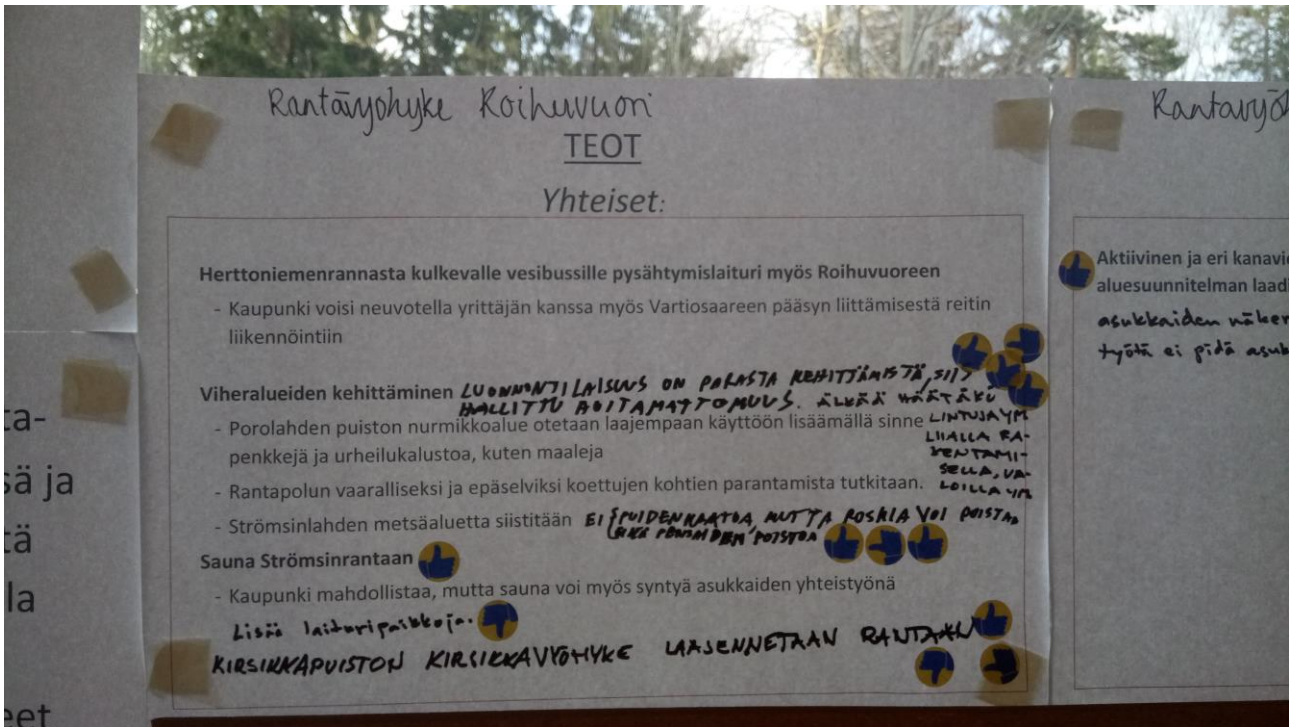 Rantavyöhyke Roihuvuori
TEOT
Yhteiset:
Herttoniemenrannasta kulkevalle vesibussille pysähtymislaituri myös Roihuvuoreen
- Kaupunki voisi neuvotella yrittäjän kanssa myös Vartiosaareen pääsyn liittämisestä reitin
liikennöintiin
Viheralueiden kehittäminen LUONNONTILAISUUS ON PARASTA KEHITTÄMISTÄ, SIIS
HALLITTU HOITAMATTOMUUS. ÄLKÄÄ HÄÄTÄKÖ
LINTUJA YM
LIIALLA RA-
KENTAMI-
SELLA, VA-
LOILLA YM
- Porolahden puiston nurmikkoalue otetaan laajempaan käyttöön lisäämällä sinne
penkkejä ja urheilukalustoa, kuten maaleja
- Rantapolun vaaralliseksi ja epäselviksi koettujen kohtien parantamista tutkitaan.
- Strömsinlahden metsäaluetta siistitään EI PUIDENKAATOA, MUTTA ROSKIA VOI POISTAA
EIKÄ PENSAIDEN POISTOA
Sauna Strömsinrantaan
- Kaupunki mahdollistaa, mutta sauna voi myös syntyä asukkaiden yhteistyönä
Lisää laituripaikkoja.
KIRSIKKAPUISTON KIRSIKKAVYÖHYKE LAAJENNETAAN RANTAAN
Rantavyö
Aktiivinen ja eri kanavi
aluesuunnitelman laad
asukkaiden näke
työtä ei pidä asuk
ta-
sä ja
tä
la
eet